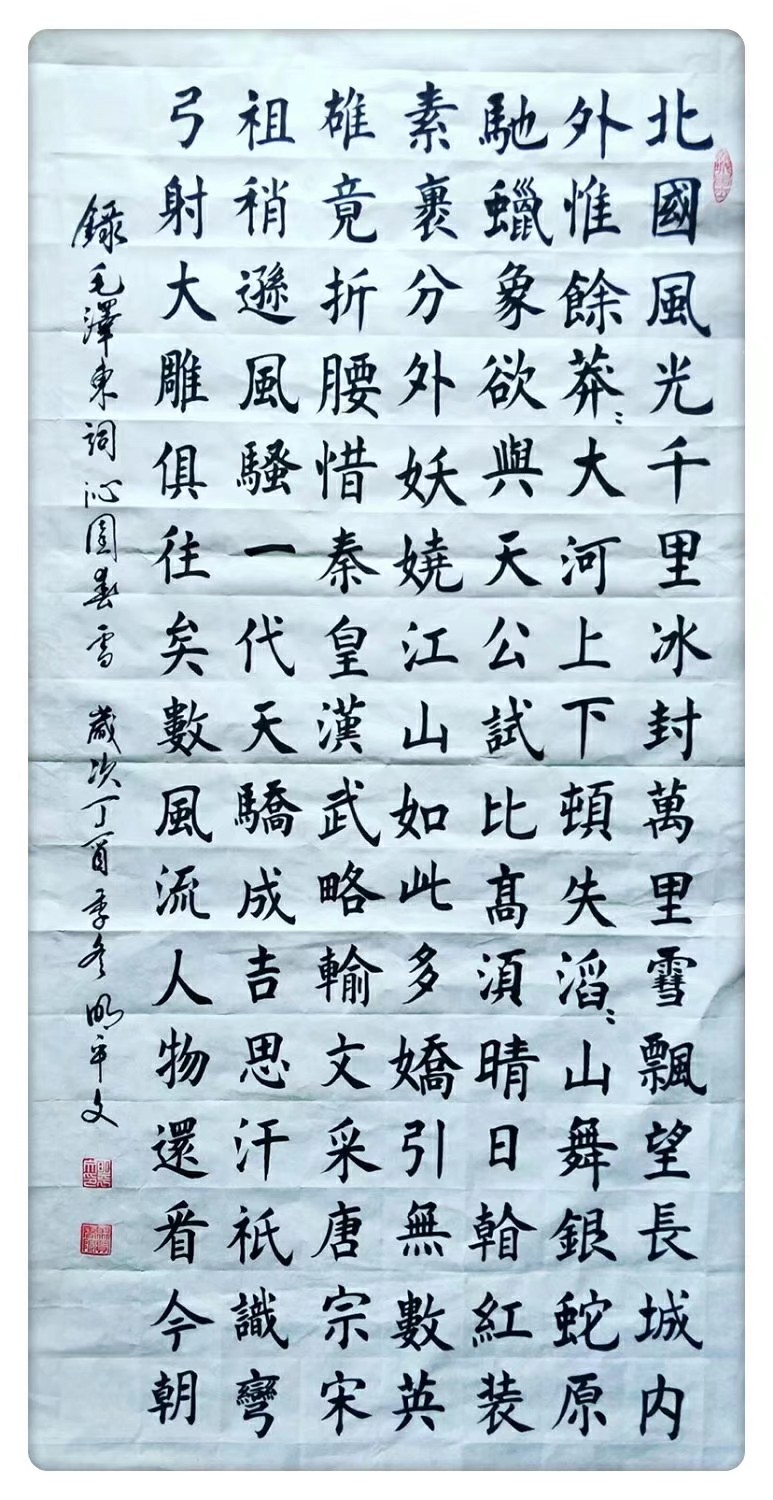 北國風光千里冰封萬里雪飄望長城内
外惟餘莽〻大河上下頓失滔〻山舞銀蛇原
馳蠟象欲與天公試比高須晴日看紅装
素裹分外妖嬈江山如此多嬌引無數英
雄竟折腰惜秦皇漢武略輸文采唐宗宋
祖稍遜風騷一代天驕成吉思汗衹識彎
弓射大雕俱往矣數風流人物還看今朝
錄毛澤東詞沁園春雪 歲次丁酉季冬 明平文